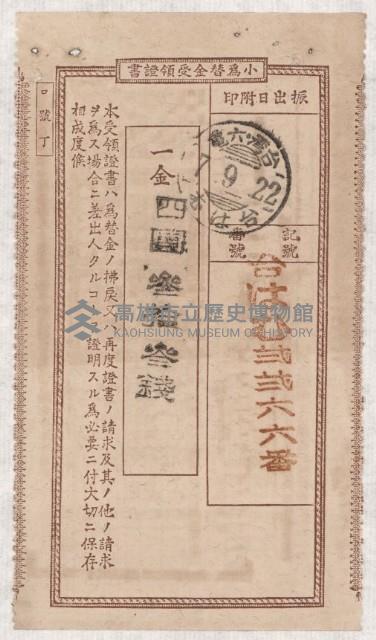 小為替金受領證書
振出日附印
7.9.22
記號
番號
弐弐六六番
一金
四圓参拾参錢
本受領證書ハ為替金ノ拂戻又ハ再度證書ノ請求及其ノ他ノ請求
ヲ為ス場合ニ差出人タルコ 證明スル為必要ニ付大切ニ保存
相成度候
口號丁
高雄市立歷史博物館
KAOHSIUNG MUSEUM OF HISTORY